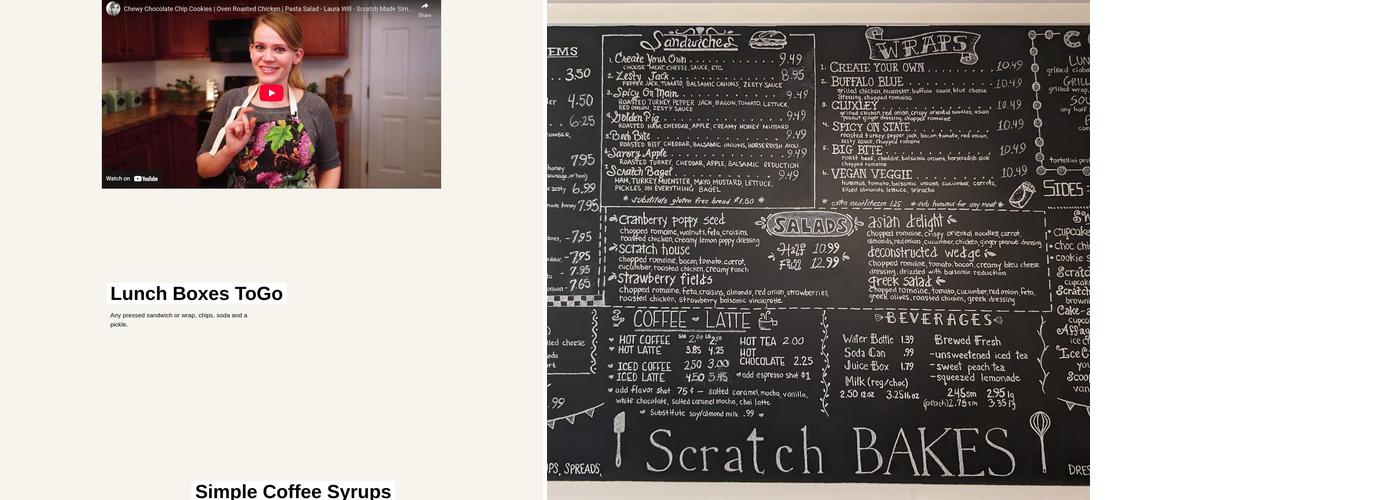 Chewy Chocolate Chip Cookies | Oven Roasted Chicken | Pasta Salad - Laura Will - Scratch Made Sim...
Share
Watch on YouTube
Lunch Boxes ToGo
Any pressed sandwich or wrap, chips, soda and a
pickle.
Simple Coffee Syrups
EMS
3.50
4.50
6.25
7.95
6.99
7.95
-7.95
-7.95
- 7.95
- 7.65
Sandwiches
1. Create Your Own 9.49
CHOOSE MEAT, CHEESE, SAUCE, ETC.
2. Zesty Jack 8.95
PEPPER JACK, TOMATO, BALSAMIC ONIONS, ZESTY SAUCE
3. Spicy On Main 9.49
ROASTED TURKEY, PEPPER JACK, BACON, TOMATO, LETTUCE,
RED ONION, ZESTY SAUCE
4. Golden Pig 9.49
ROASTED HAM, CHEDDAR, APPLE, CREAMY HONEY MUSTARD
5. Barb Bite 9.49
ROASTED BEEF, CHEDDAR, BALSAMIC ONIONS, HORSERDISH AIOLI
6. Savory Apple 9.49
ROASTED TURKEY, CHEDDAR, APPLE, BALSAMIC REDUCTION
7. Scratch Bagel 9.49
HAM, TURKEY, MUENSTER, MAYO, MUSTARD, LETTUCE,
PICKLES, ON EVERYTHING BAGEL
* substitute gluten free bread $1.50 *
WRAPS
1. CREATE YOUR OWN 10.49
2. BUFFALO BLUE 10.49
grilled chicken, muenster, buffalo sauce, blue cheese
dressing, chopped romaine
3. CLUXLEY 10.49
grilled chicken, red onion, crispy oriental noodles, asian
peanut ginger dressing, chopped romaine
4. SPICY ON STATE 10.49
roasted turkey, pepper jack, bacon, tomato, red onion,
zesty sauce, chopped romaine
5. BIG BITE 10.49
roast beef, cheddar, balsamic onions, horserdish aioli
chopped romaine
6. VEGAN VEGGIE 10.49
hummus, tomato, balsamic onions, cucumber, carrots,
sliced almonds, lettuce, sriracha
* extra meat/cheese 1.25 * sub hummus for any meat *
SIDES
SALADS
Half 10.99
Full 12.99
cranberry poppy seed
chopped romaine, walnuts, feta, craisins,
roasted chicken, creamy lemon poppy dressing
scratch house
chopped romaine, bacon, tomato, carrot,
cucumber, roasted chicken, creamy ranch
strawberry fields
chopped romaine, feta, craisins, almonds, red onion, strawberries
roasted chicken, strawberry balsamic vinaigrette
asian delight
chopped romaine, crispy oriental noodles, carrot,
almonds, red onion, cucumber, chicken, ginger peanut dressing
deconstructed wedge
chopped romaine, tomato, bacon, creamy bleu cheese
dressing, drizzled with balsamic reduction
greek salad
chopped romaine, tomato, cucumber, red onion, feta,
greek olives, roasted chicken, greek dressing
COFFEE - LATTE
HOT COFFEE SM 2.00 LG 2.50
HOT LATTE 3.85 4.25
ICED COFFEE 2.50 3.00
ICED LATTE 4.50 5.45
HOT TEA 2.00
HOT
CHOCOLATE 2.25
* add espresso shot $1
add flavor shot 75¢ - salted caramel, mocha, vanilla,
white chocolate, salted caramel mocha, chai latte
Substitute soy/almond milk .99
BEVERAGES
Water Bottle 1.39
Soda Can .99
Juice Box 1.79
Milk (reg/choc)
2.50 12oz 3.25 16oz
Brewed Fresh
-unsweetened iced tea
-sweet peach tea
-squeezed lemonade
2.45sm 2.95 lg
(peach) 2.75sm 3.35 lg
Scratch BAKES